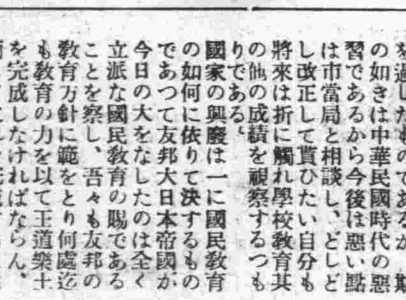 を過したものであるが
の如きは中華民國時代の惡
習であるから今後は惡い點
は市當局と相談し、どしど
し改正して貰ひたい自分も
將來は折に觸れ學校教育其
の他の成績を視察するつも
りである、
國家の興廢は一に國民教育
の如何に依りて決するもの
であつて友邦大日本帝國が
今日の大をなしたのは全く
立派な國民教育の賜である
ことを察し、吾々も友邦の
教育方針に範をとり何處迄
も教育の力を以て王道樂土
を完成しなければならん、